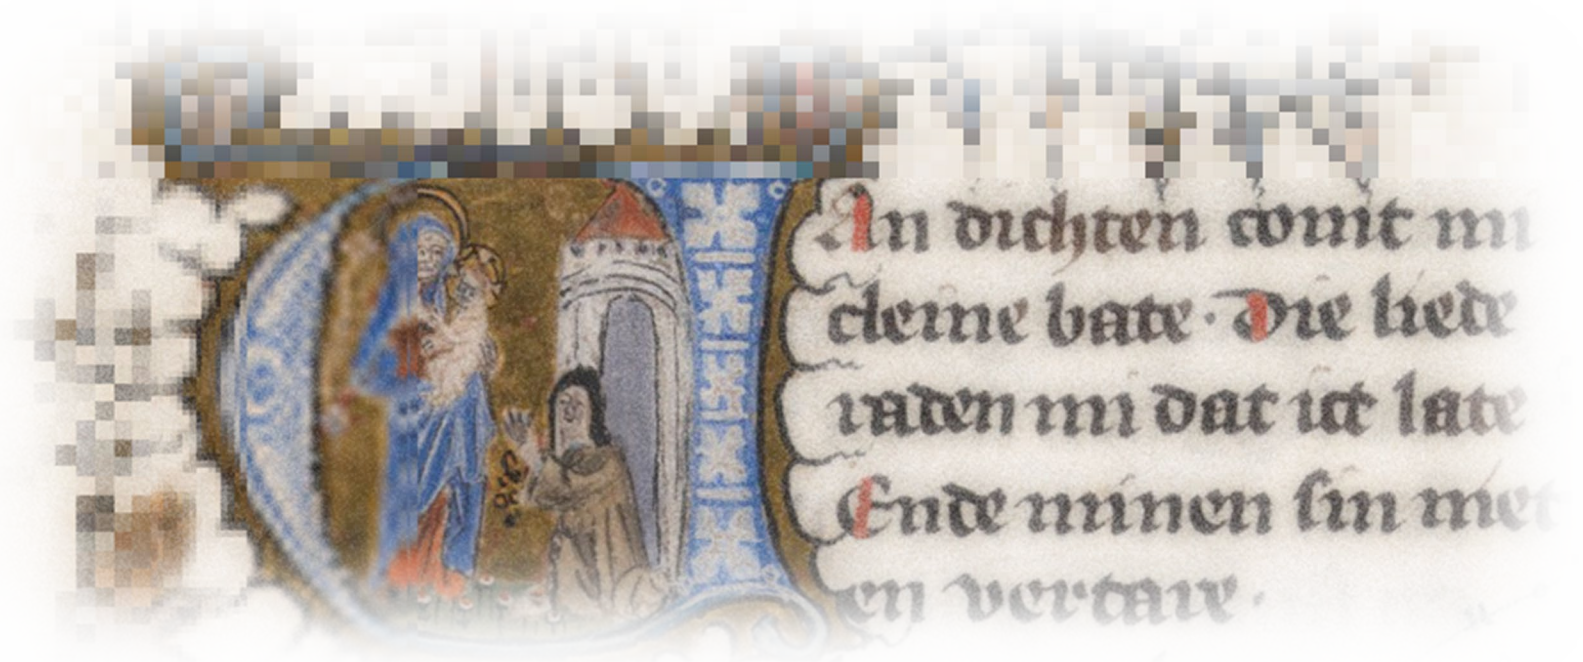 VAn dichten comt mi
cleine bate· Die liede
raden mi dat ict late
Ende minen sin niet
en vertare·